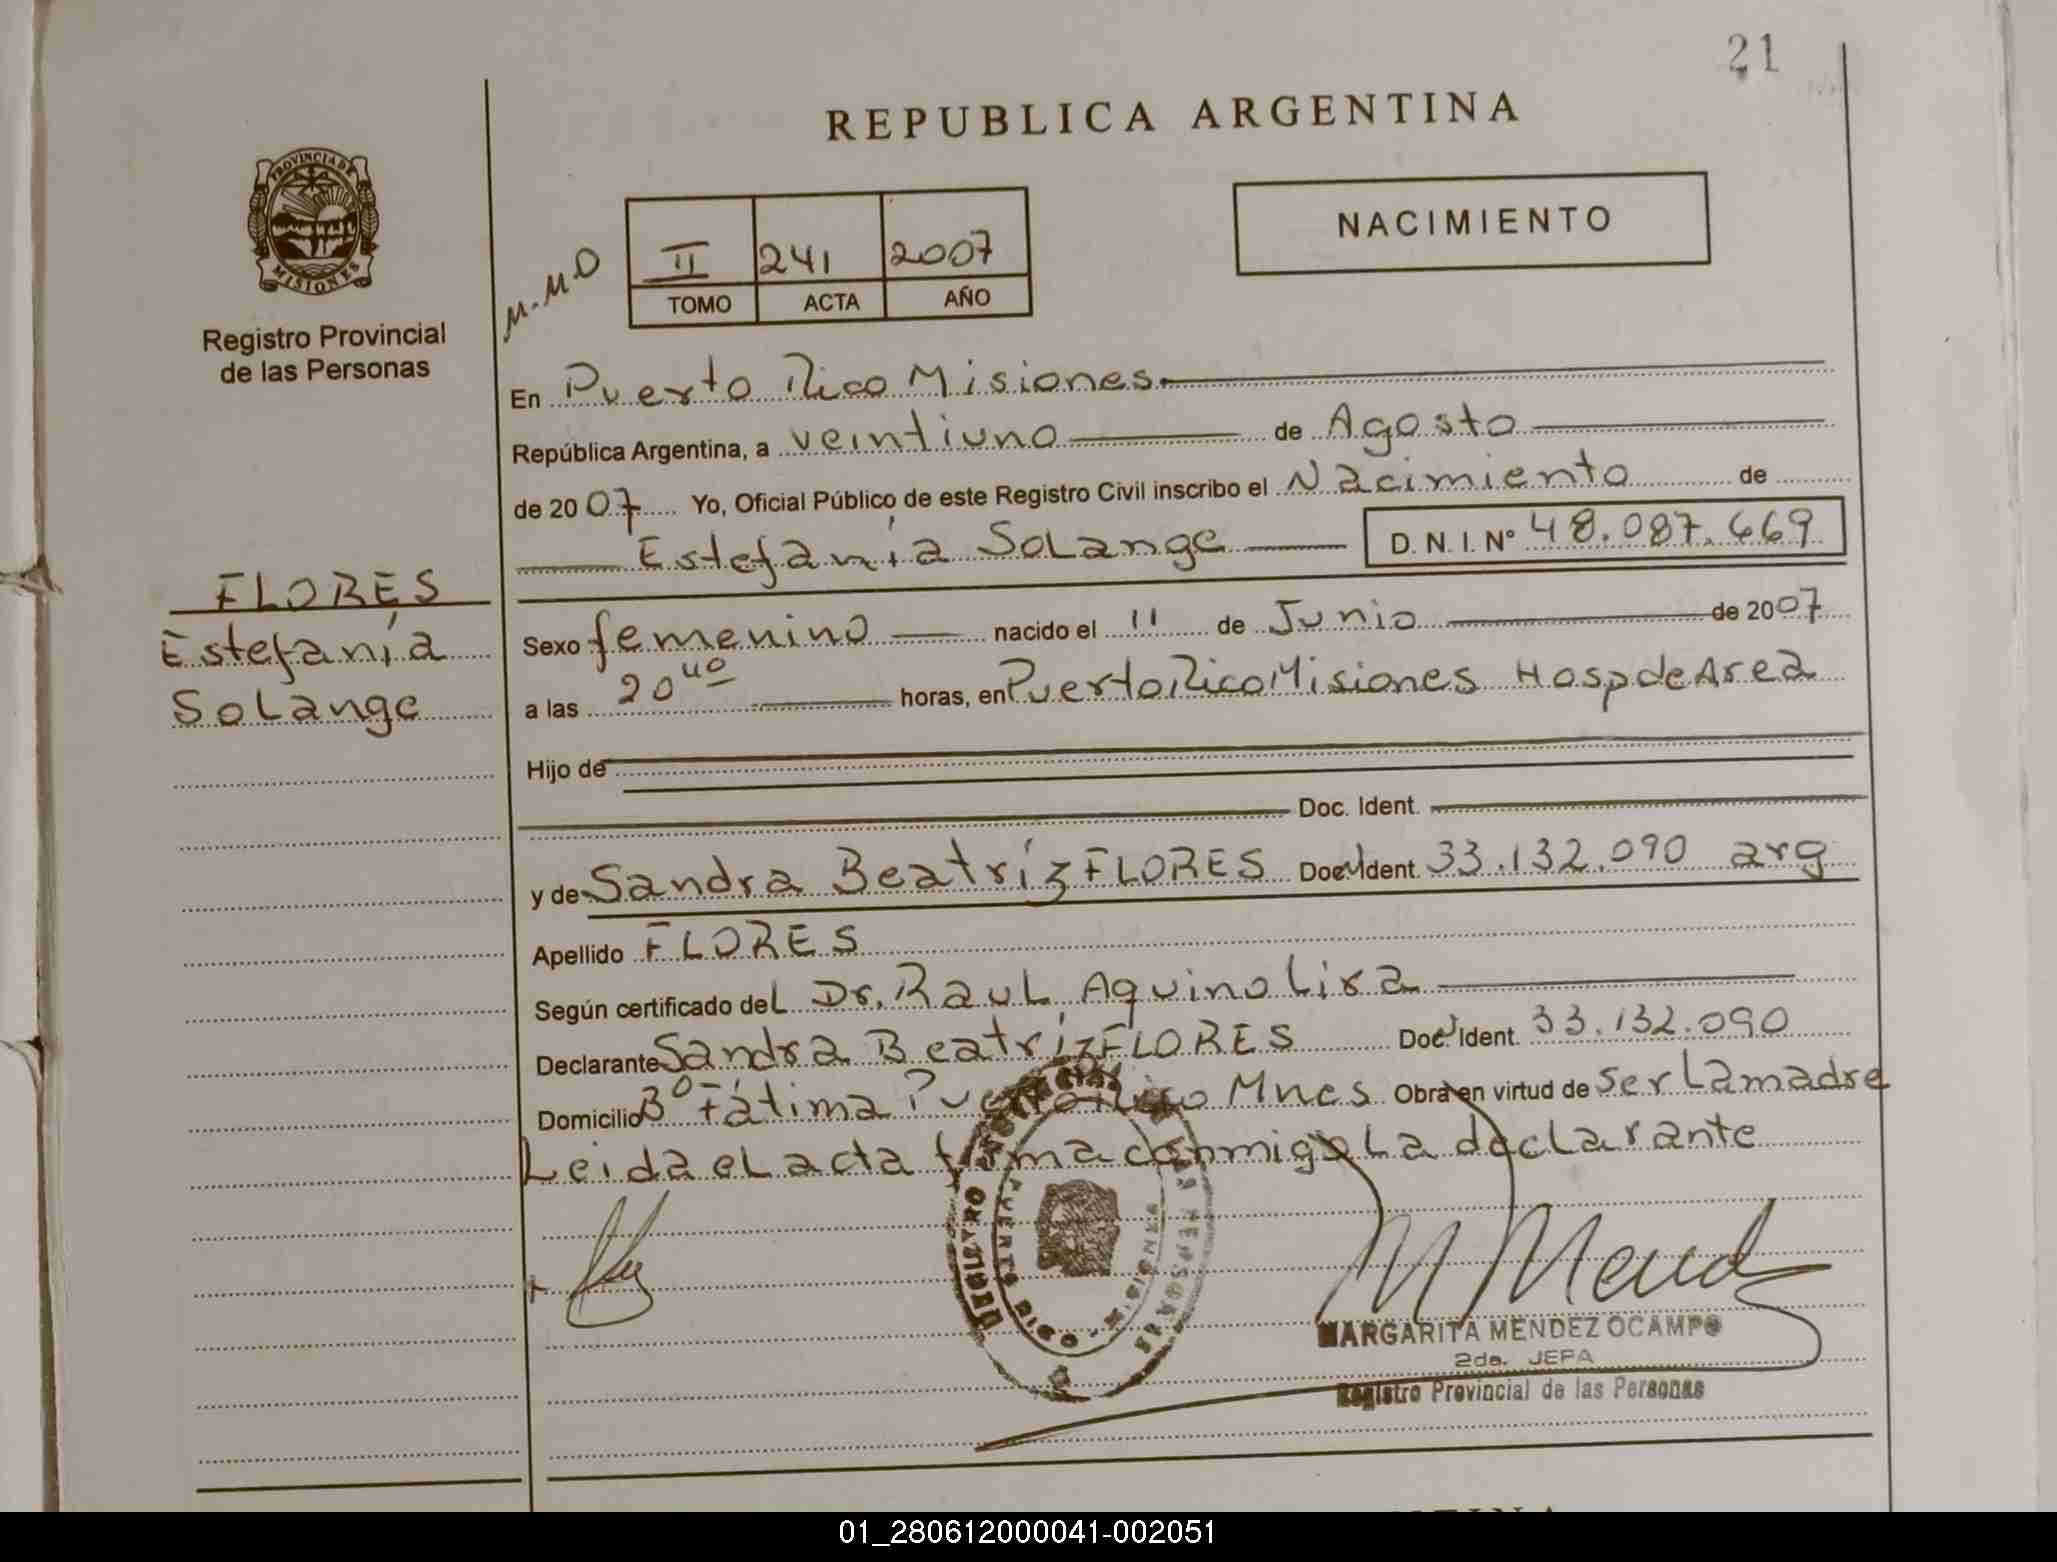 21
REPUBLICA ARGENTINA
PROVINCIA DE
MISIONES
Registro Provincial
de las Personas
M.M.O
II 241 2007
TOMO ACTA AÑO
NACIMIENTO
En Puerto Rico Misiones
República Argentina, a veintiuno de Agosto
de 2007 Yo, Oficial Público de este Registro Civil inscribo el Nacimiento de
Estefanía Solange D. N. I. Nº 48.087.669
FLORES
Estefanía
Solange
Sexo femenino nacido el 11 de Junio de 2007
a las 20 40 horas, en Puerto Rico Misiones Hosp de Area
Hijo de
Doc. Ident.
y de Sandra Beatríz FLORES Doc. Ident. 33.132.090 arg
Apellido FLORES
Según certificado del Dr. Raul Aquino Lira
Declarante Sandra Beatríz FLORES Doc. Ident. 33.132.090
Domicilio Bº Fátima Puerto Rico Mnes Obra en virtud de ser la madre
Leida el acta firma conmigo la declarante
MARGARITA MENDEZ OCAMPO
2da. JEFA
Registro Provincial de las Personas
01_280612000041-002051